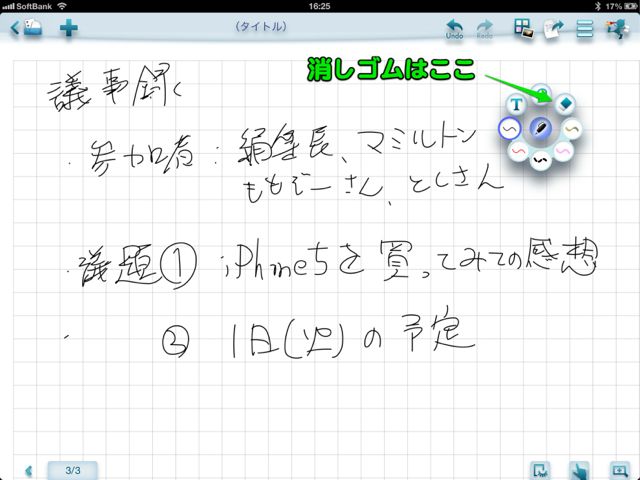 SoftBank 16:25 17%
(タイトル)
Undo Redo
消しゴムはここ
T
議事録
・参加者：編集長、マミルトン
ももぞーさん、としさん
・議題① iPhone5を買ってみての感想
・② 1日(火)の予定
3/3